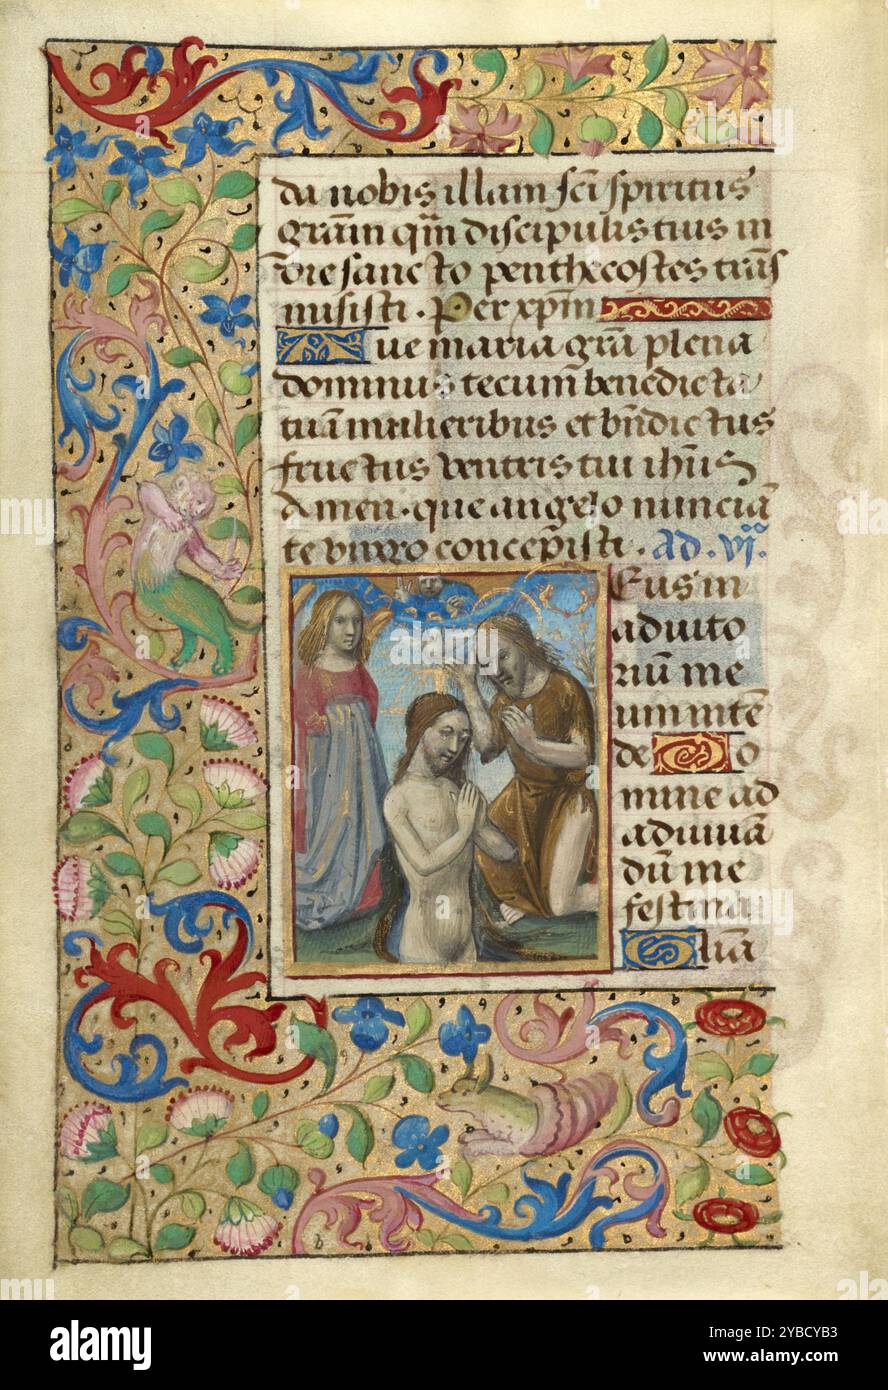 da nobis illam sc̄i spiritus
grām qm̄ discipulis tuis in
die sancto penthecostes trās
misisti. Per xpm̄
Aue maria grā plena
dominus tecum benedicta
tu ī mulieribus et bn̄dictus
fructus ventris tui ihūs
Amen. que angelo nunciā
te concepisti. ad. vjᵃ.
Deus in
adiuto
riū me
um intē
de Do
mine ad
adiuuā
dū me
festina
Gliā
alamy
Image ID: 2YBCYB3
www.alamy.com